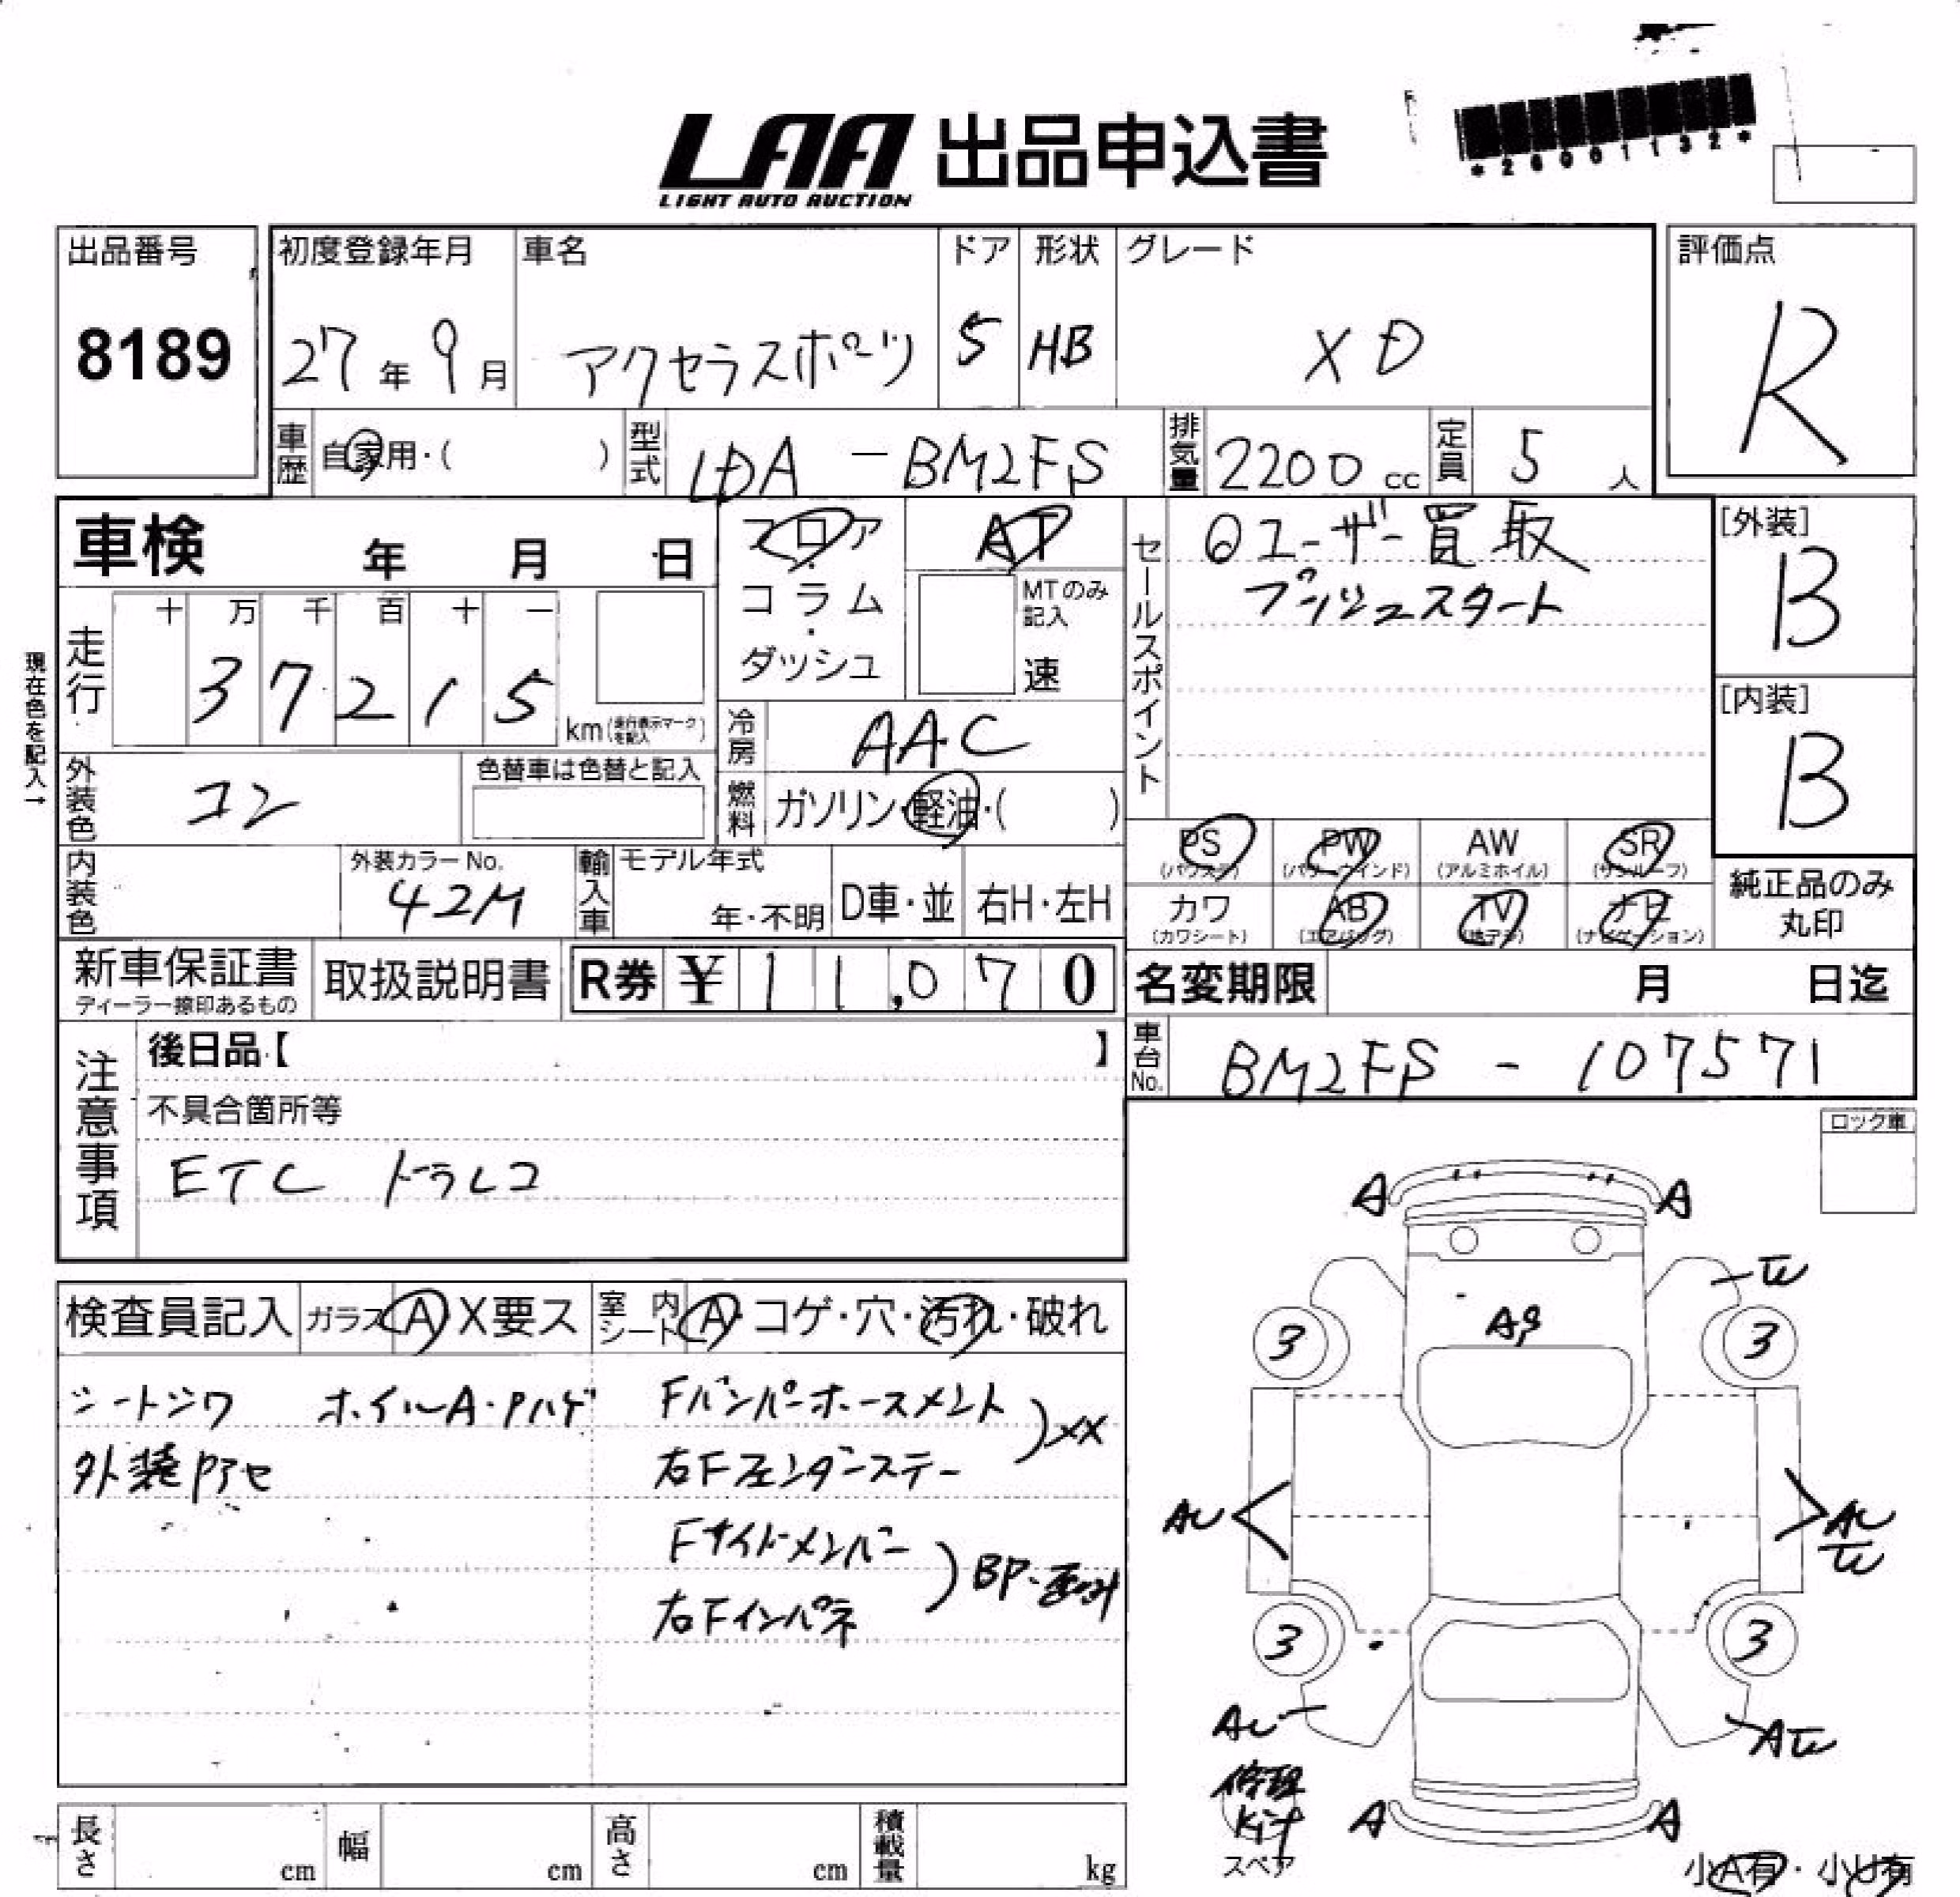 LAA 出品申込書
LIGHT AUTO AUCTION
*20001132*
出品番号
8189
初度登録年月
27年9月
車名
アクセラスポーツ
ドア
5
形状
HB
グレード
XD
評価点
R
車歴 自家用・( )
型式 LDA - BM2FS
排気量 2200 cc
定員 5 人
車検 年 月 日
フロア
・
コラム
・
ダッシュ
AT
MTのみ
記入
速
セールスポイント
ユーザー買取
プッシュスタート
[外装]
B
[内装]
B
現在色を記入→
走行
十 万 千 百 十 一
3 7 2 1 5
km(走行表示マークを記入)
冷房 AAC
外装色 コン
色替車は色替と記入
燃料 ガソリン・軽油・( )
PS (パワステ)
PW (パワーウインド)
AW (アルミホイル)
SR (サンルーフ)
カワ (カワシート)
AB (エアバッグ)
TV (地デジ)
ナビ (ナビゲーション)
純正品のみ
丸印
内装色
外装カラーNo.
42M
輸入車
モデル年式
年・不明
D車・並
右H・左H
新車保証書
ディーラー捺印あるもの
取扱説明書
R券 ¥ 11,070
名変期限 月 日迄
車台No. BM2FS - 107571
注意事項
後日品【 】
不具合箇所等
ETC ドラレコ
ロック車
検査員記入 ガラス A X要ス
室内シート A・コゲ・穴・汚れ・破れ
シートシワ ホイールA・Pハゲ
外装Pアセ
Fバンパーホースメント
右Fフェンダーステー
)XX
Fサイドメンバー
右Fインパネ
)BP・
A A
AS
3 3
AU
AU
3 3
AU
修理
Kit
スペア
A A
小A有・小U有
長さ cm
幅 cm
高さ cm
積載量 kg